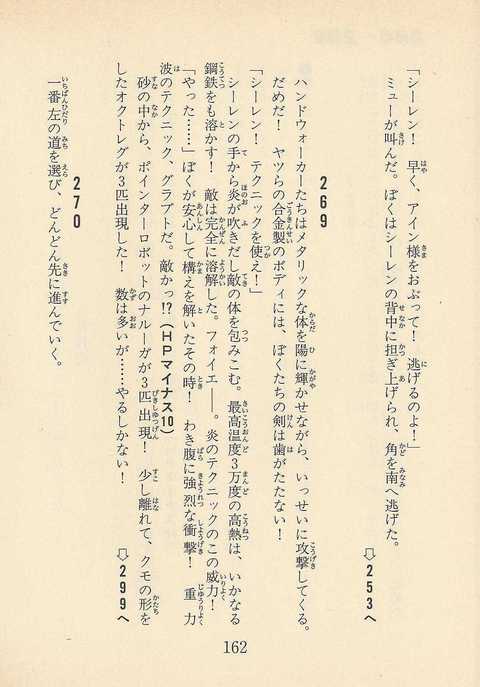 「シーレン！　早く、アイン様をおぶって！　逃げるのよ！」
ミューが叫んだ。ぼくはシーレンの背中に担ぎ上げられ、角を南へ逃げた。
⇨253へ
269
ハンドウォーカーたちはメタリックな体を陽に輝かせながら、いっせいに攻撃してくる。
だめだ！　ヤツらの合金製のボディには、ぼくたちの剣は歯がたたない！
「シーレン！　テクニックを使え！」
シーレンの手から炎が吹きだし敵の体を包みこむ。最高温度3万度の高熱は、いかなる
鋼鉄をも溶かす！　敵は完全に溶解した。フォイエ——。炎のテクニックのこの威力！
「やった……」ぼくが安心して構えを解いたその時！　わき腹に強烈な衝撃！　重力
波のテクニック、グラブトだ。敵かっ!?（HPマイナス10）
砂の中から、ポインターロボットのナルーガが3匹出現！　少し離れて、クモの形を
したオクトレグが3匹出現した！　数は多いが……やるしかない！
⇨299へ
270
一番左の道を選び、どんどん先に進んでいく。
162